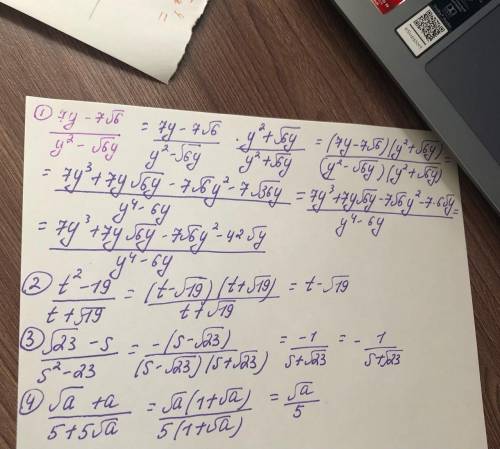 ① (7y - 7√6)/(y² - √6y) = (7y - 7√6)/(y² - √6y) · (y² + √6y)/(y² + √6y) = (7y - 7√6)(y² + √6y)/(y² - √6y)(y² + √6y) =
= (7y³ + 7y√6y - 7√6y² - 7√36y)/(y⁴ - 6y) = (7y³ + 7y√6y - 7√6y² - 7·6√y)/(y⁴ - 6y) =
= (7y³ + 7y√6y - 7√6y² - 42√y)/(y⁴ - 6y)
② (t² - 19)/(t + √19) = (t - √19)(t + √19)/(t + √19) = t - √19
③ (√23 - s)/(s² - 23) = -(s - √23)/(s - √23)(s + √23) = -1/(s + √23) = - 1/(s + √23)
④ (√a + a)/(5 + 5√a) = √a(1 + √a)/5(1 + √a) = √a/5